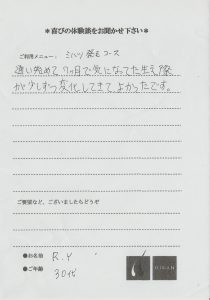 ＊喜びの体験談をお聞かせ下さい＊
ご利用メニュー： ミハツ発毛コース
通い始めて7ヶ月で気になってた生え際
が少しずつ変化してきてよかったです。
ご要望など、ございましたらどうぞ
●お名前 R.Y
●ご年齢 30代